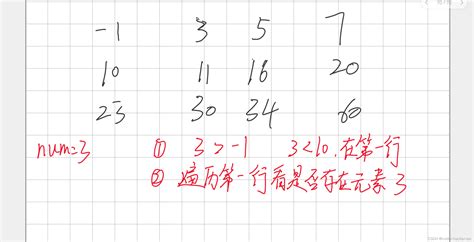 -1 3 5 7
10 11 16 20
23 30 34 60
num=3 ① 3>-1 3<10,在第一行
② 遍历第一行看是否存在元素3